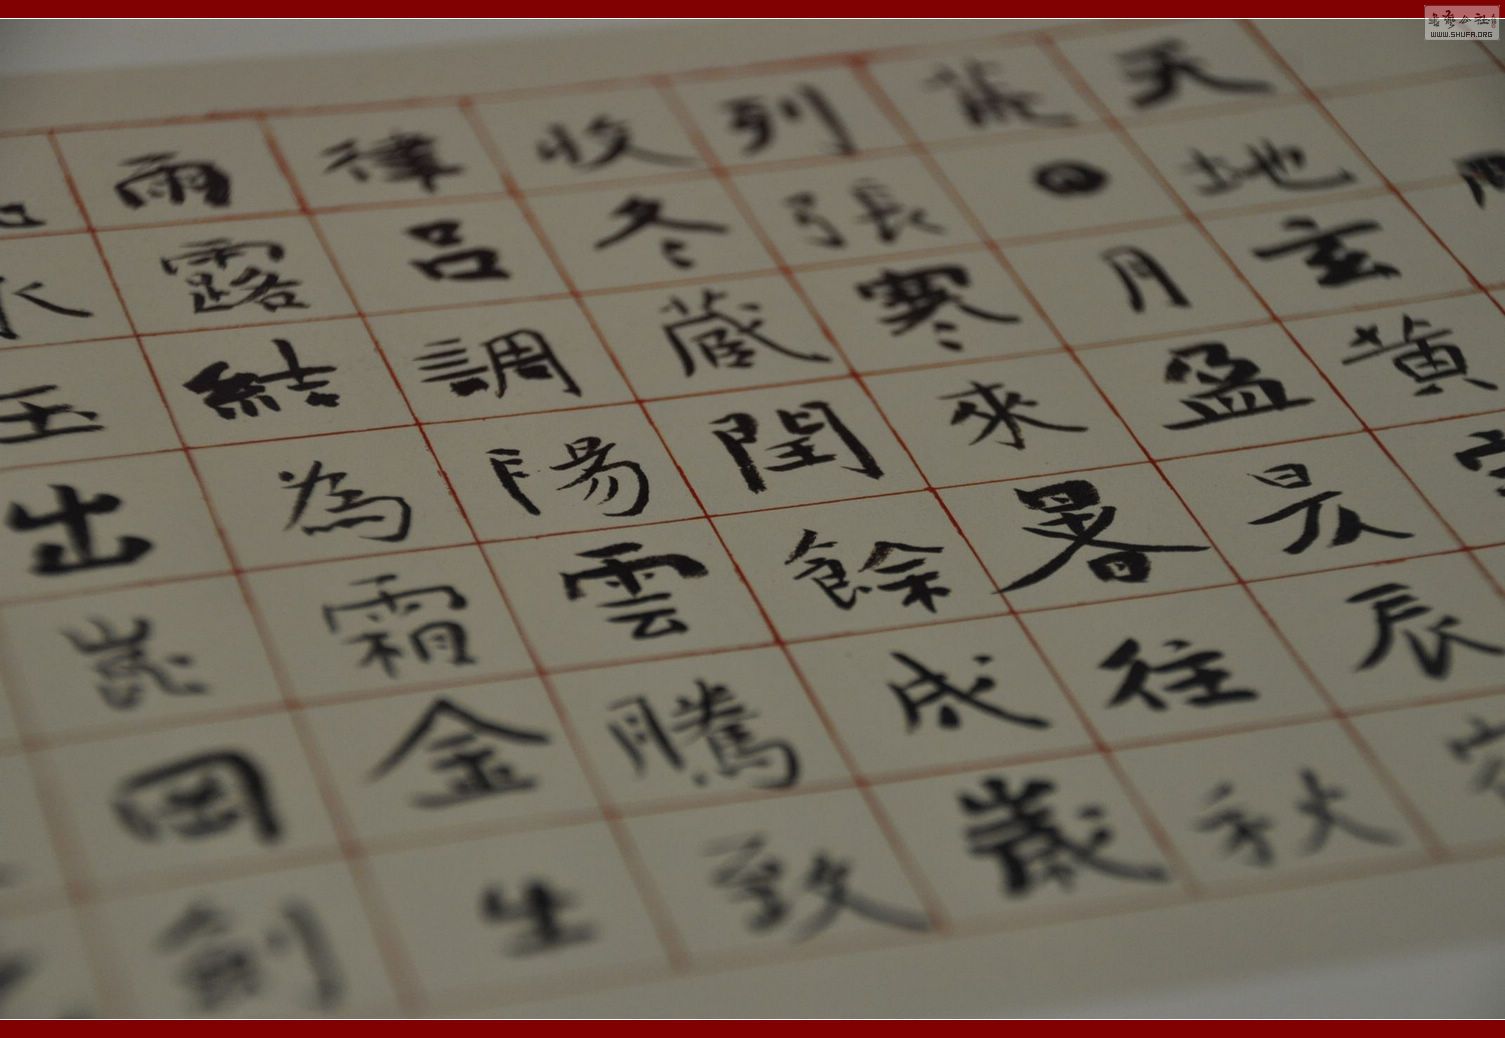 天地玄黃宇
荒日月盈昃辰宿
列張寒來暑往秋
收冬藏閏餘成歲
律呂調陽雲騰致
雨露結為霜金生
水玉出崑岡劍
书法公社
WWW.SHUFA.ORG